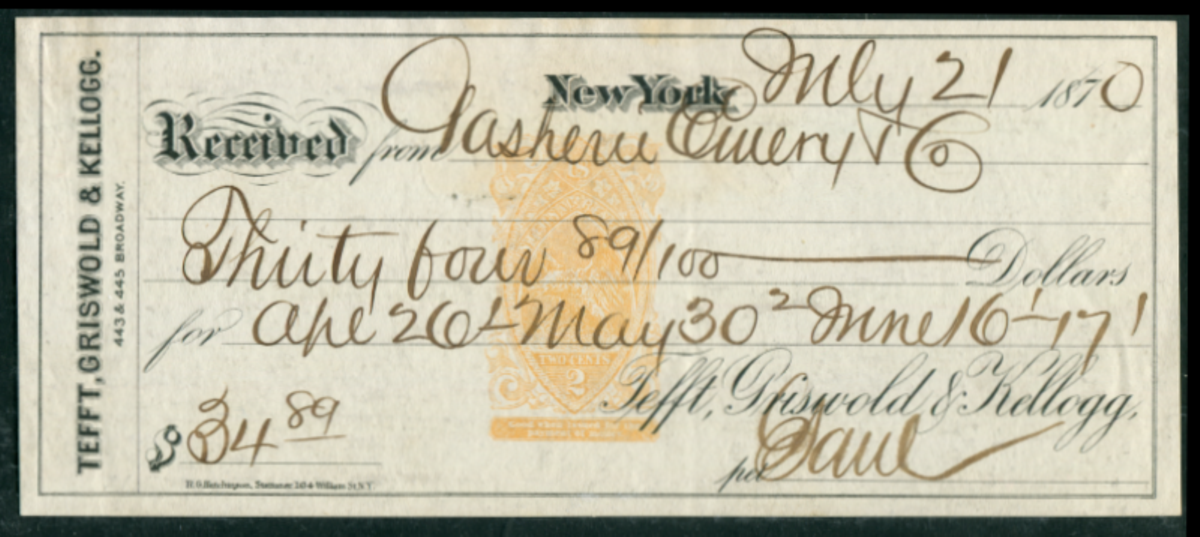 TEFFT, GRISWOLD & KELLOGG.
443 & 445 BROADWAY.
New York, July 21 1870
Received from Emery & Co
Thirty four 89/100 Dollars
for Apl 26 1 May 30 2 June 16 1 17 1
Tefft, Griswold & Kellogg,
$ 34 89
per
TWO CENTS
2